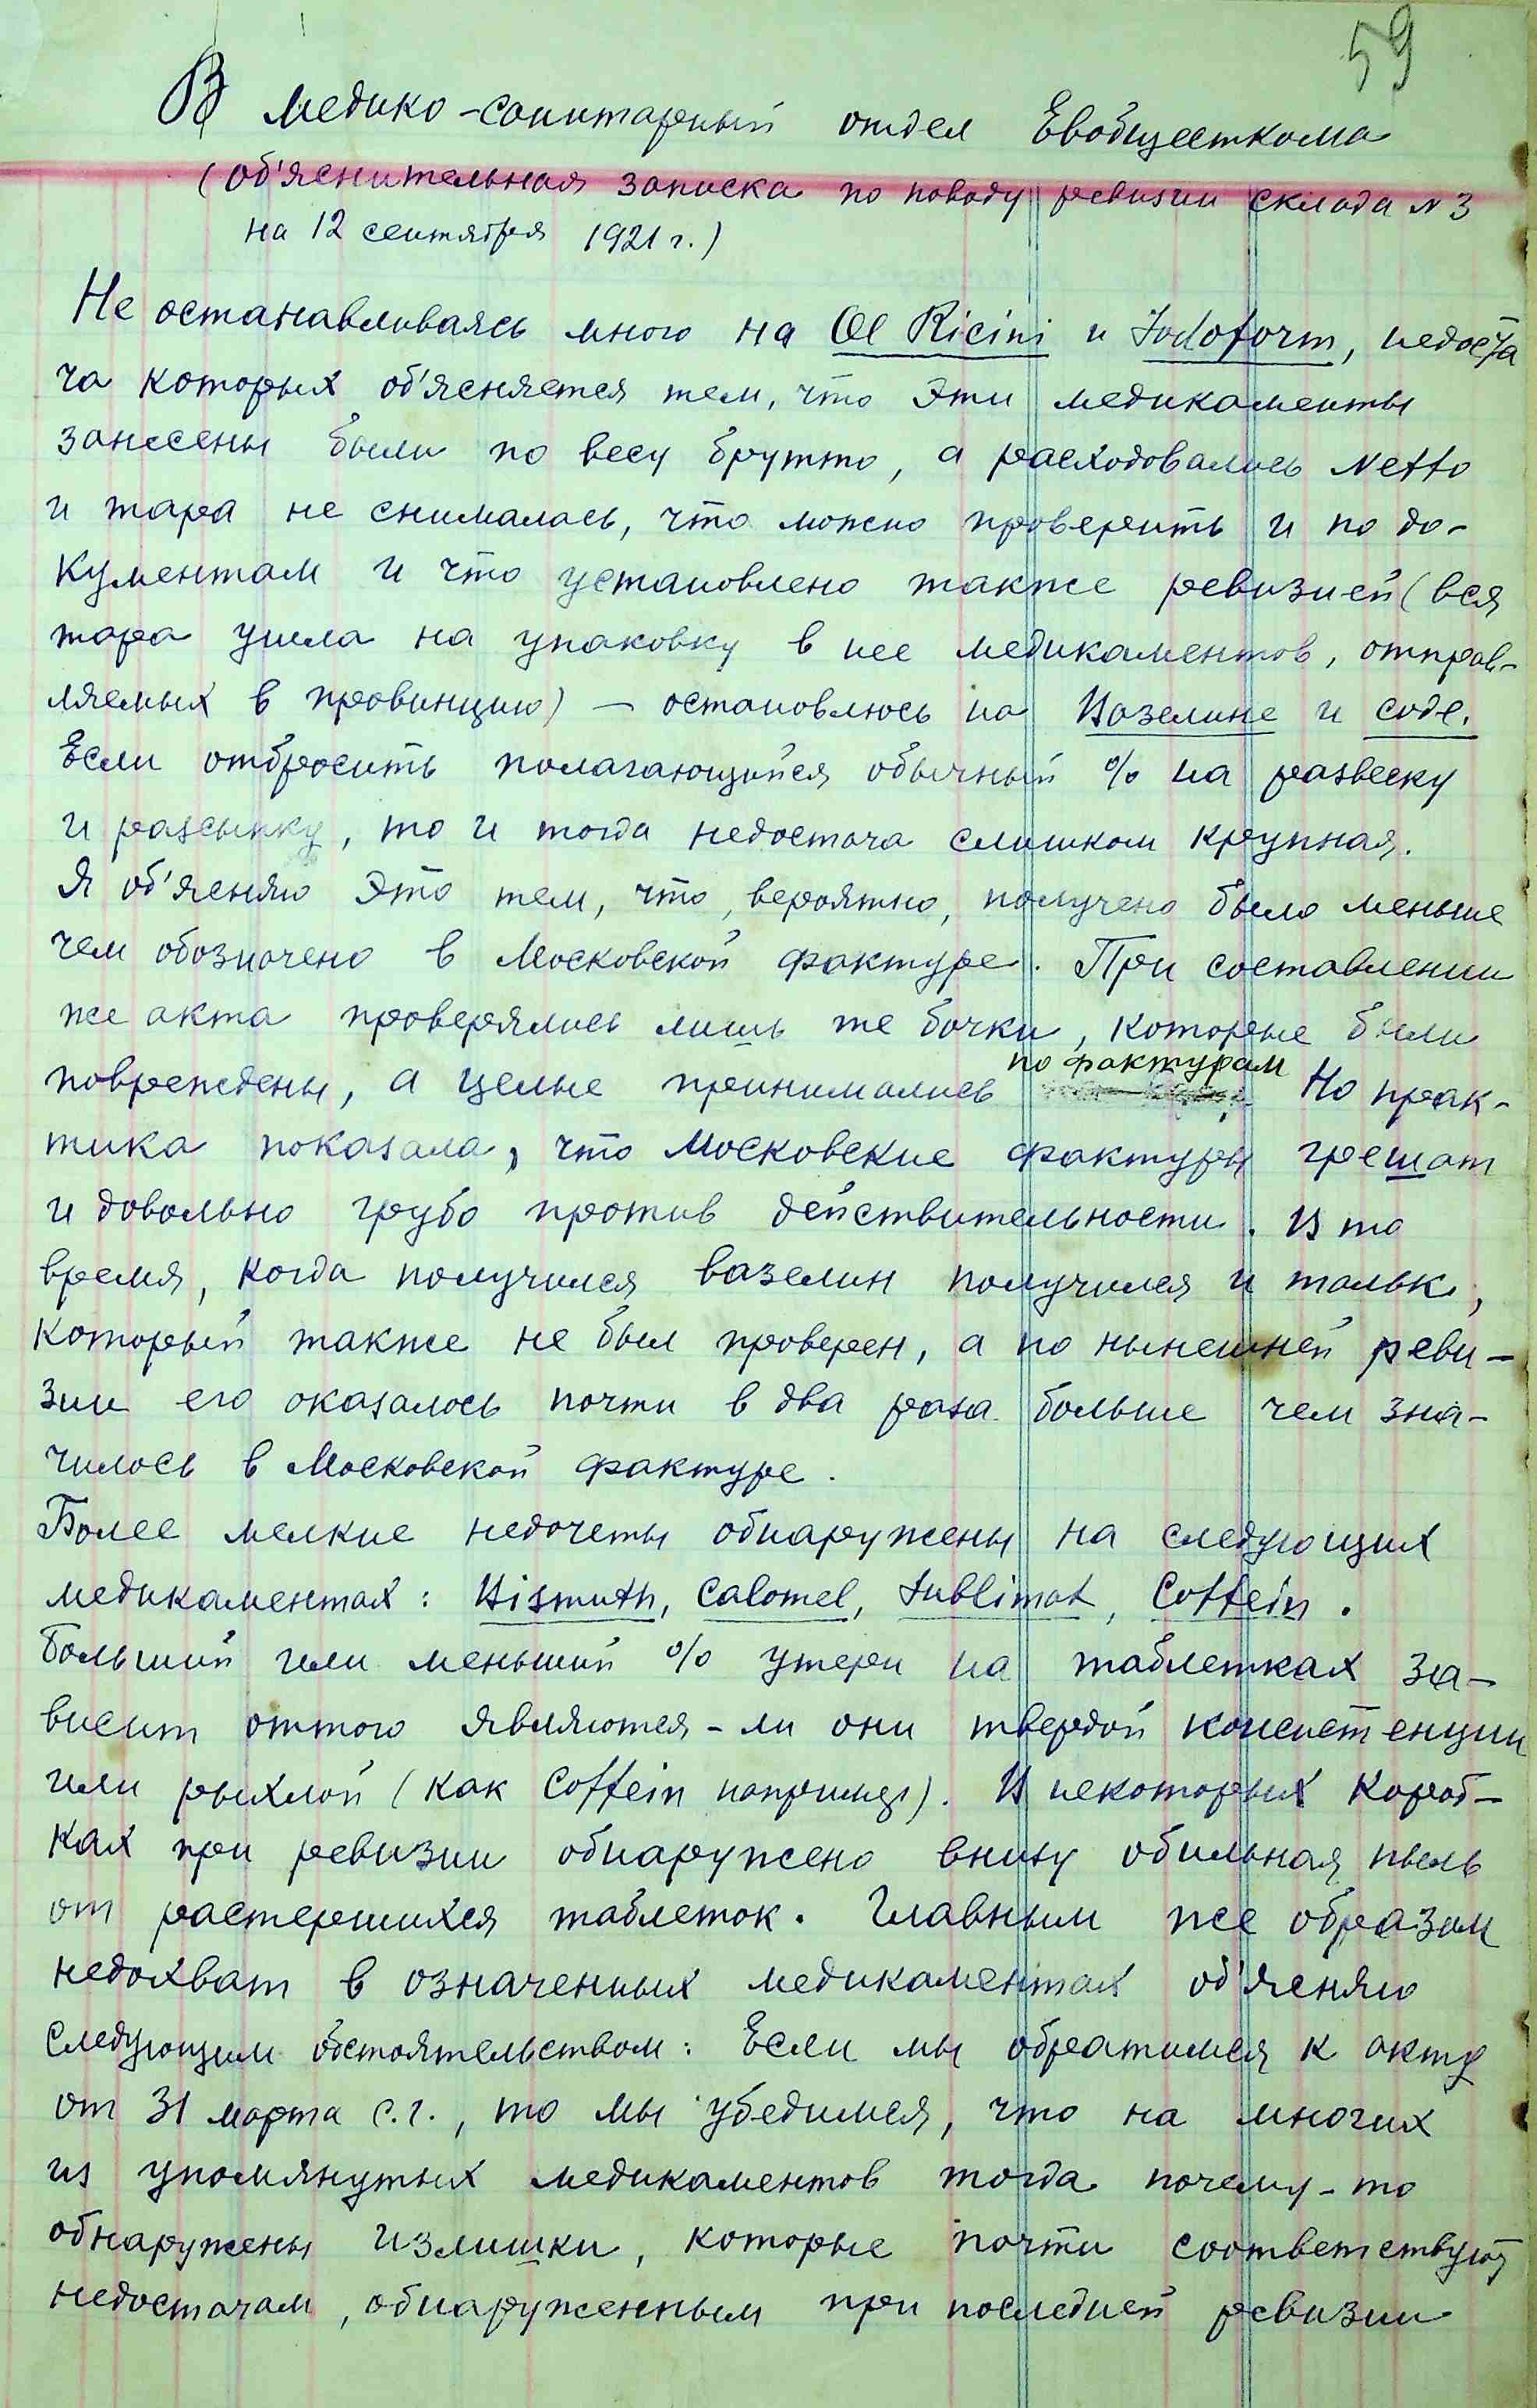 59
В медико-санитарный отдел Евобщесткома
(об'яснительная записка по поводу ревизии склада № 3
на 12 сентября 1921 г.)
Не останавливаясь много на Ol Ricini и Jodoform, недоста
ча которых об'ясняется тем, что эти медикаменты
занесены были по весу брутто, а расходовались Netto
и тара не снималась, что можно проверить и по до-
кументам и что установлено также ревизией (вся
тара ушла на упаковку в нее медикаментов, отправ-
ляемых в провинцию) — остановлюсь на Вазелине и соде.
Если отбросить полагающийся обычный % на развеску
и разсыпку, то и тогда недостача слишком крупная.
Я об'ясняю это тем, что, вероятно, получено было меньше
чем обозначено в Московской фактуре. При составлении
же акта проверялись лишь те бочки, которые были
повреждены, а целые принимались по фактурам Но прак-
тика показала, что Московские фактуры грешат
и довольно грубо против действительности. В то
время, когда получился вазелин получился и тальк,
который также не был проверен, а по нынешней реви-
зии его оказалось почти в два раза больше чем зна-
чилось в Московской фактуре.
Более мелкие недочеты обнаружены на следующих
медикаментах: Bismuth, Calomel, Sublimat, Coffein.
Больший или меньший % утери на таблетках за-
висит оттого являются-ли они твердой консистенции
или рыхлой (как Coffein например). В некоторых короб-
ках при ревизии обнаружено внизу обильная пыль
от растершихся таблеток. Главным же образом
недохват в означенных медикаментах об'ясняю
следующим обстоятельством: Если мы обратимся к акту
от 31 марта с.г., то мы убедимся, что на многих
из упомянутых медикаментов тогда почему-то
обнаружены излишки, которые почти соответствуют
недостачам, обнаруженным при последней ревизии